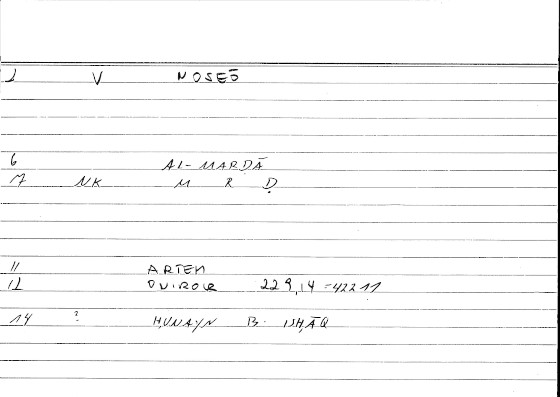 1 V NOSEŌ
6 AL-MARḌĀ
7 NK M R Ḍ
11 ARTEM
12 229,14 = 42211
14 ? ḤUNAYN B. ISḤĀQ